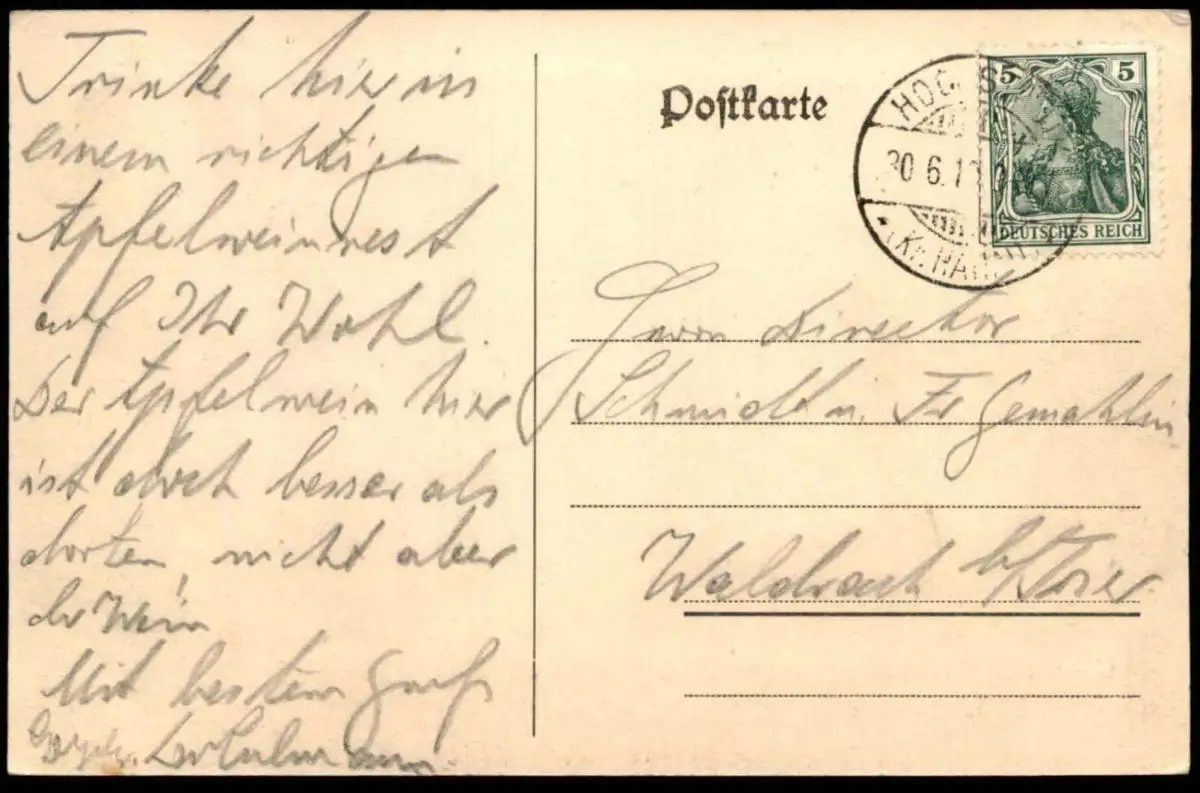 Trinke hier in
einem richtigen
Apfelweinnest
auf Ihr Wohl.
Der Apfelwein hier
ist doch besser als
dorten, nicht aber
der Wein
Mit bestem Gruß
Postkarte
5 5
DEUTSCHES REICH
30.6.1
Herrn Director
Schmidt u. Fr Gemahlin
Waldrach b/Trier